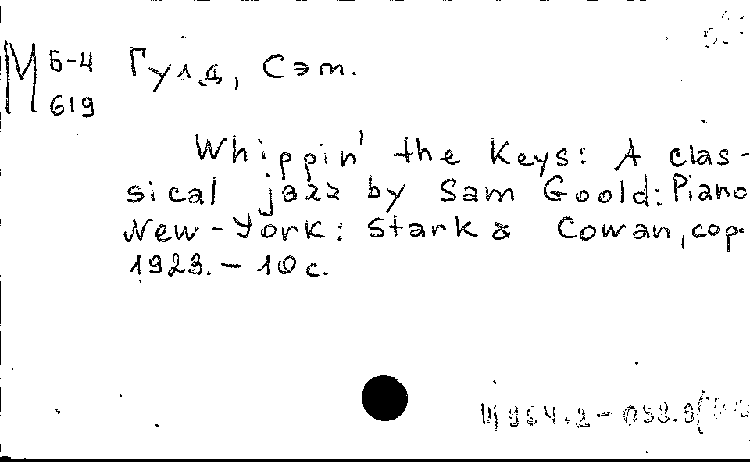 М Б-4 Гулд, Сэм.
619
Whippin' the Keys: A clas-
sical jazz by Sam Goold: Piano
New-York: Stark & Cowan, cop.
1923. - 10 с.